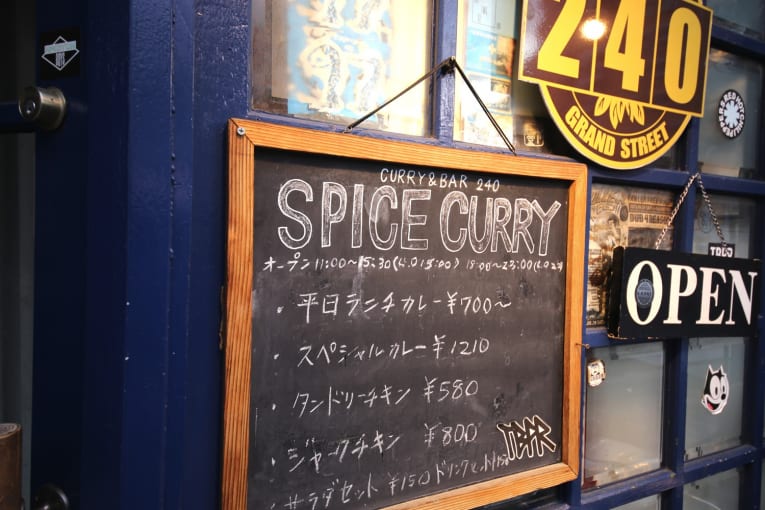 240
GRAND STREET
CURRY & BAR 240
SPICE CURRY
オープン 11:00〜15:30(L.O 15:00) 18:00〜23:00(L.O
・平日ランチカレー ¥700〜
・スペシャルカレー ¥1210
・タンドリーチキン ¥580
・ジャークチキン ¥800
・サラダセット ¥150 ドリンクセット
OPEN